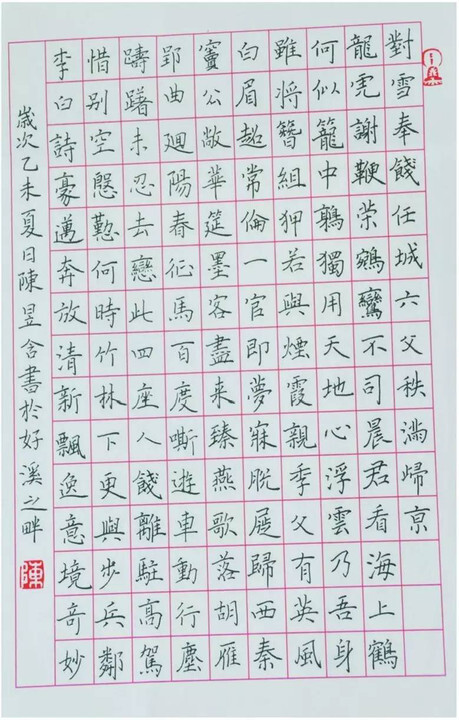 對雪奉餞任城六父秩滿歸京
龍虎謝鞭策鵷鸞不司晨君看海上鶴
何似籠中鶉獨用天地心浮雲乃吾身
雖將簪組狎若與煙霞親季父有英風
白眉超常倫一官即夢寐脫屣歸西秦
竇公敞華筵墨客盡來臻燕歌落胡雁
郢曲迴陽春征馬百度嘶遊車動行塵
躊躇未忍去戀此四座人餞離駐高駕
惜別空慇懃何時竹林下更與步兵鄰
李白詩豪邁奔放清新飄逸意境奇妙
歲次乙未夏日陳昱含書於好溪之畔
陳